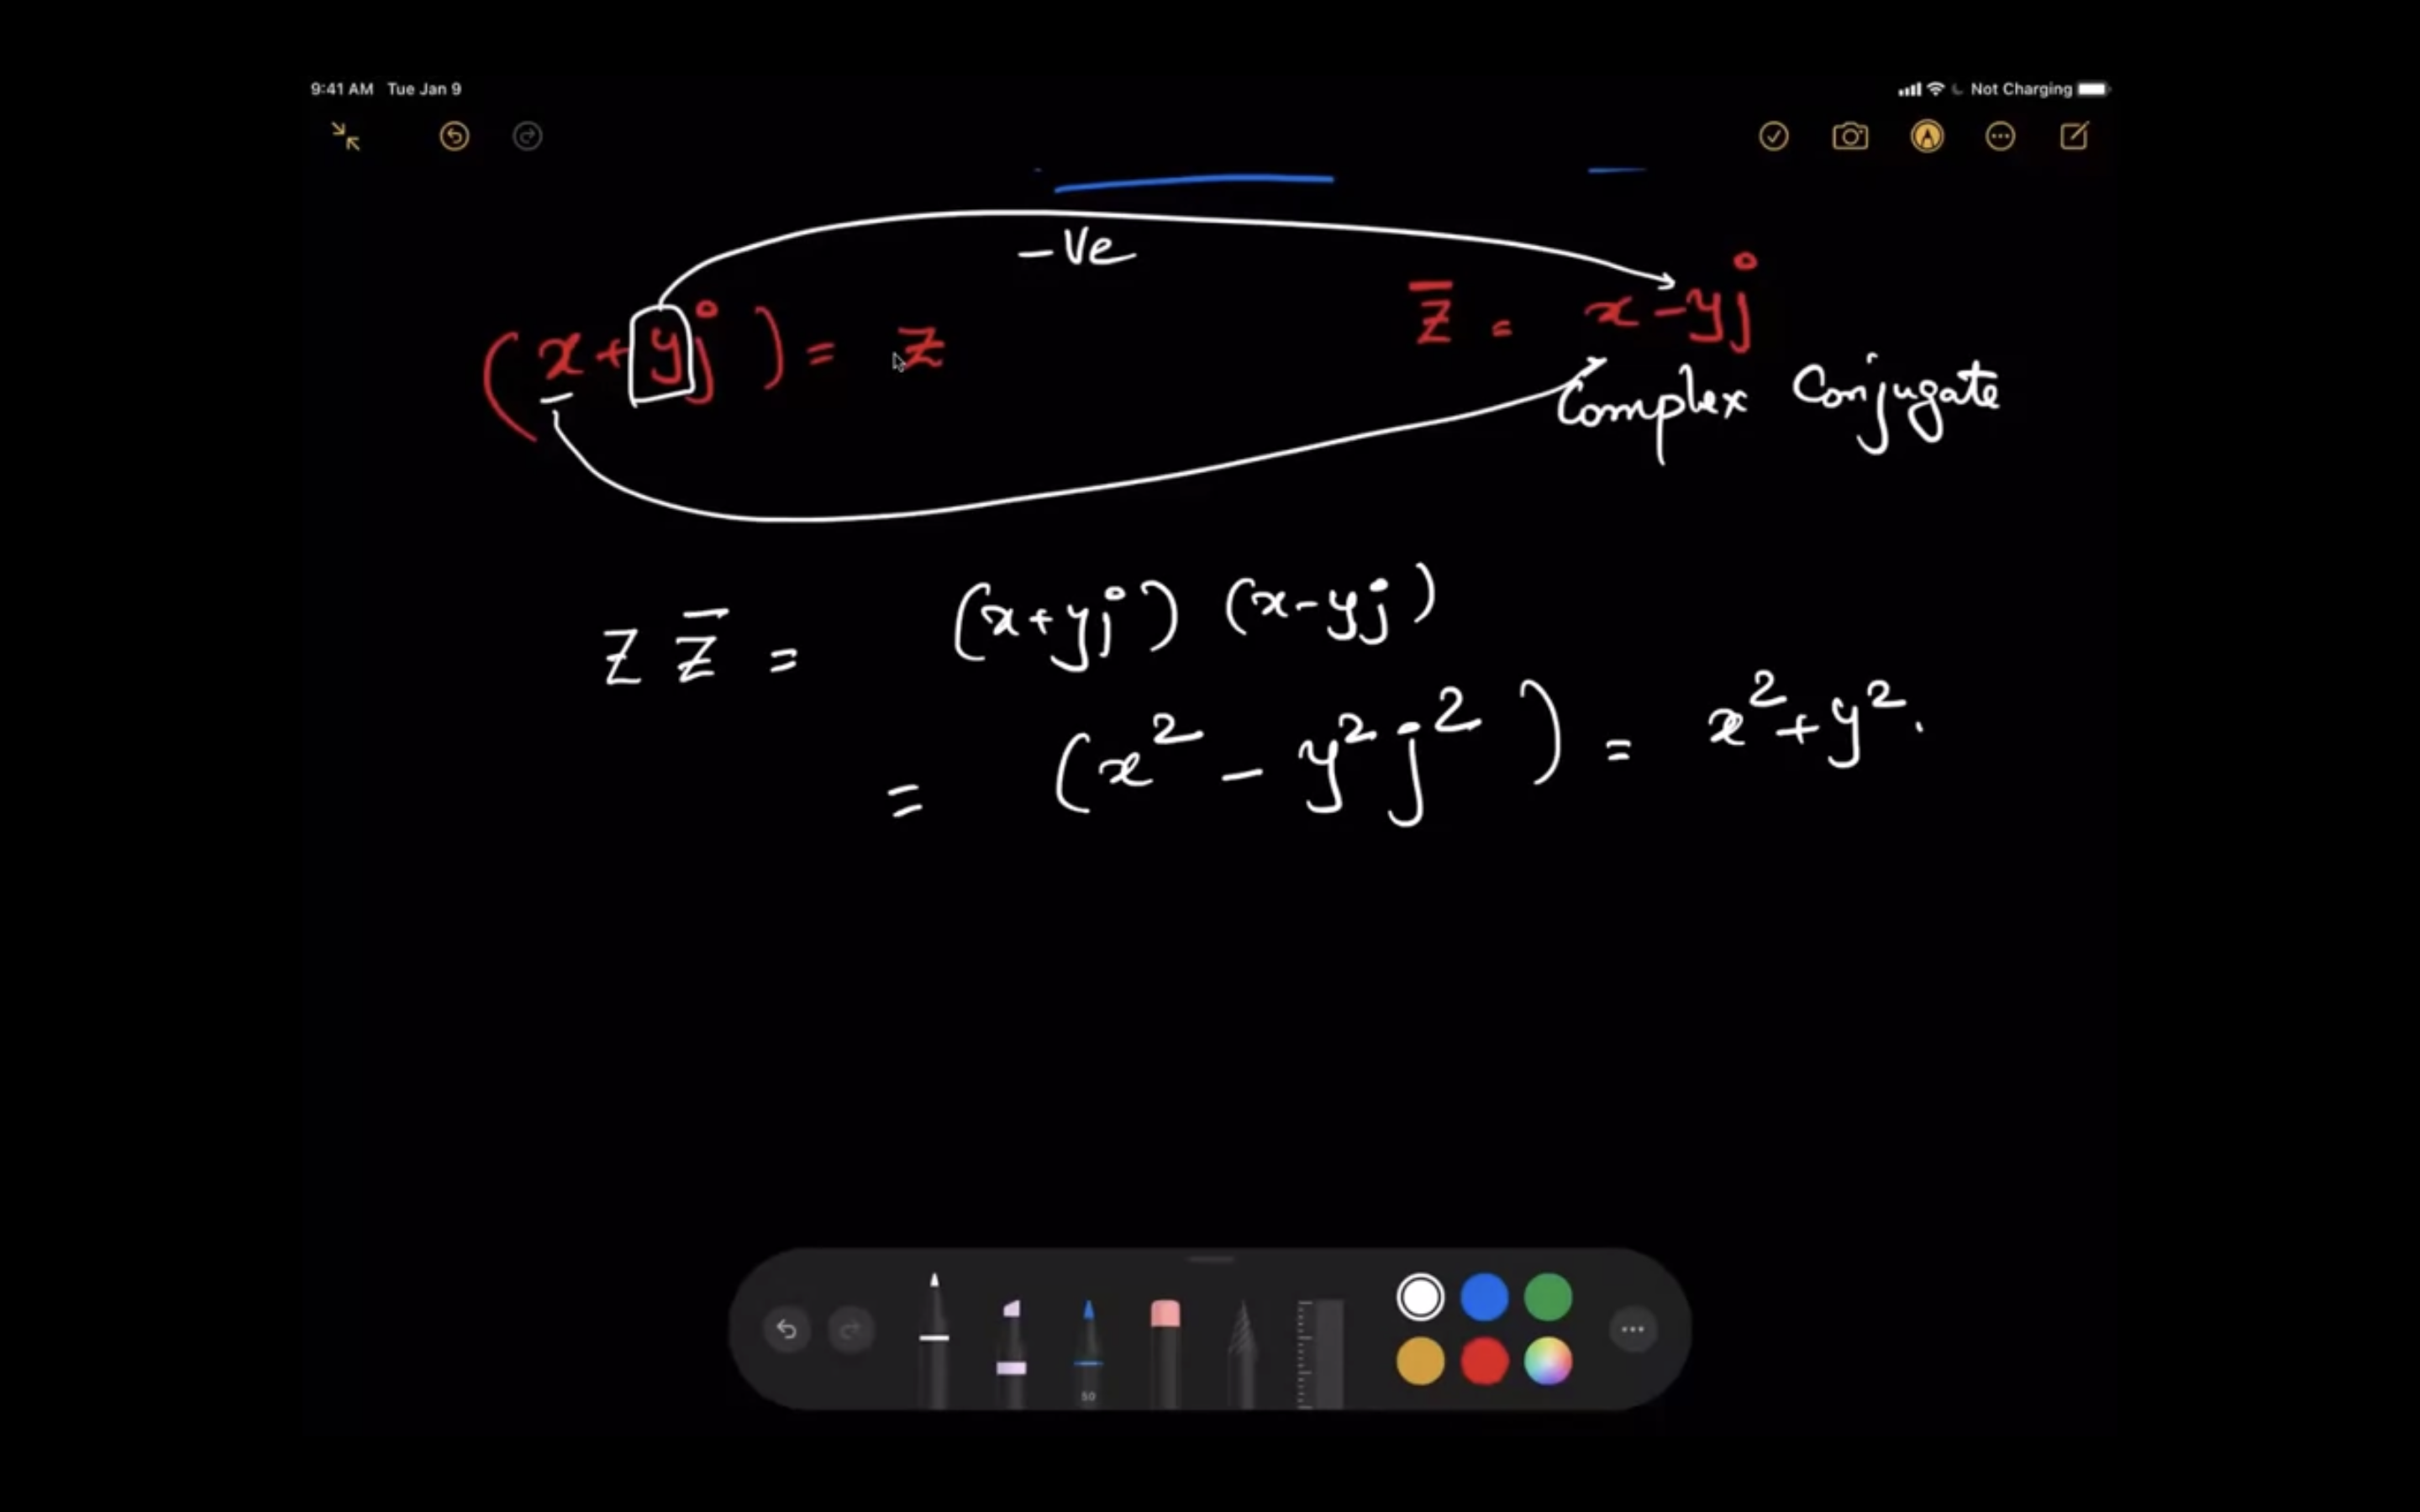 9:41 AM Tue Jan 9 Not Charging
-Ve
(x+yj) = z
z̅ = x-yj
Complex Conjugate
Z z̅ = (x+yj) (x-yj)
= (x² - y²j²) = x²+y².
50